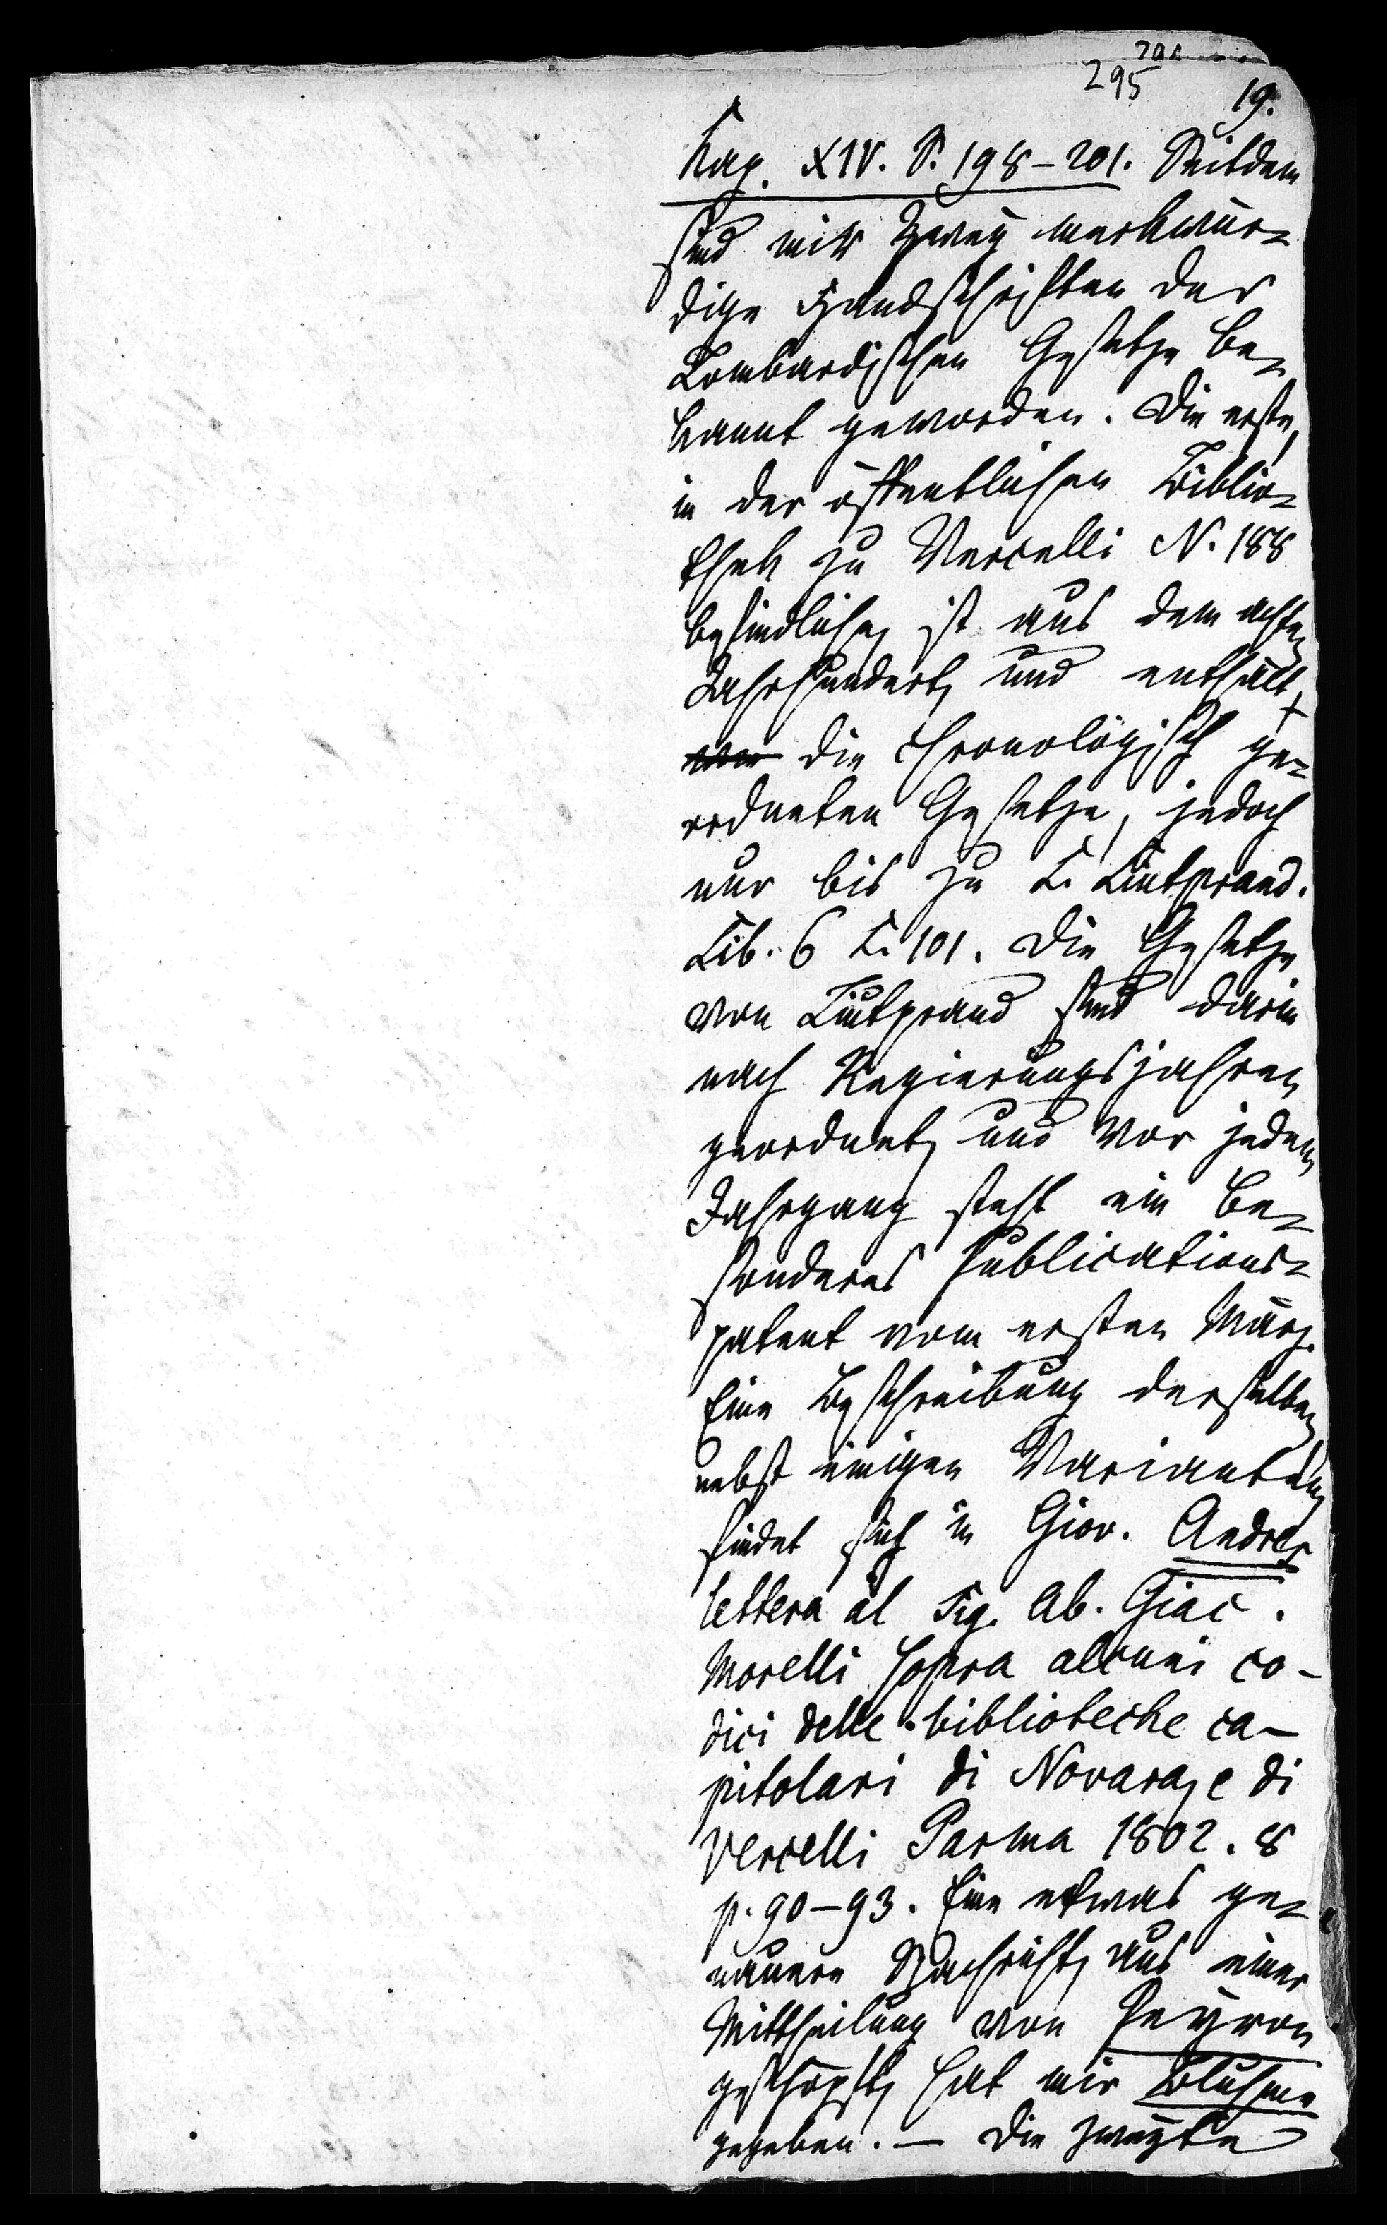 295
19.
Kap. XIV. S. 198-201. Seitdem
sind mir zwey merkwür-
dige Handschriften der
Lombardischen Gesetze be-
kannt geworden. Die erste,
in der öffentlichen Biblio-
thek zu Vercelli N. 188
befindlich, ist aus dem achten
Jahrhundert, und enthält,
die chronologisch ge-
ordneten Gesetze, jedoch
nur bis zu L. Liutprand.
Lib. 6 L. 101. Die Gesetze
von Liutprand sind darin
nach Regierungsjahren
geordnet, und vor jedem
Jahrgang steht ein be-
sonderes Publications-
patent vom ersten März.
Eine Beschreibung derselben,
nebst einigen Varianten,
findet sich in Giov. Andres
lettera al Sig. Ab. Giac.
Morelli sopra alcuni co-
dici delle biblioteche ca-
pitolari di Novara, e di
Vercelli Parma 1802. 8
p. 90-93. Eine etwas ge-
nauere Nachricht, aus einer
Mittheilung von Peyron
geschöpft, hat mir Bluhme
gegeben. — Die zweyte